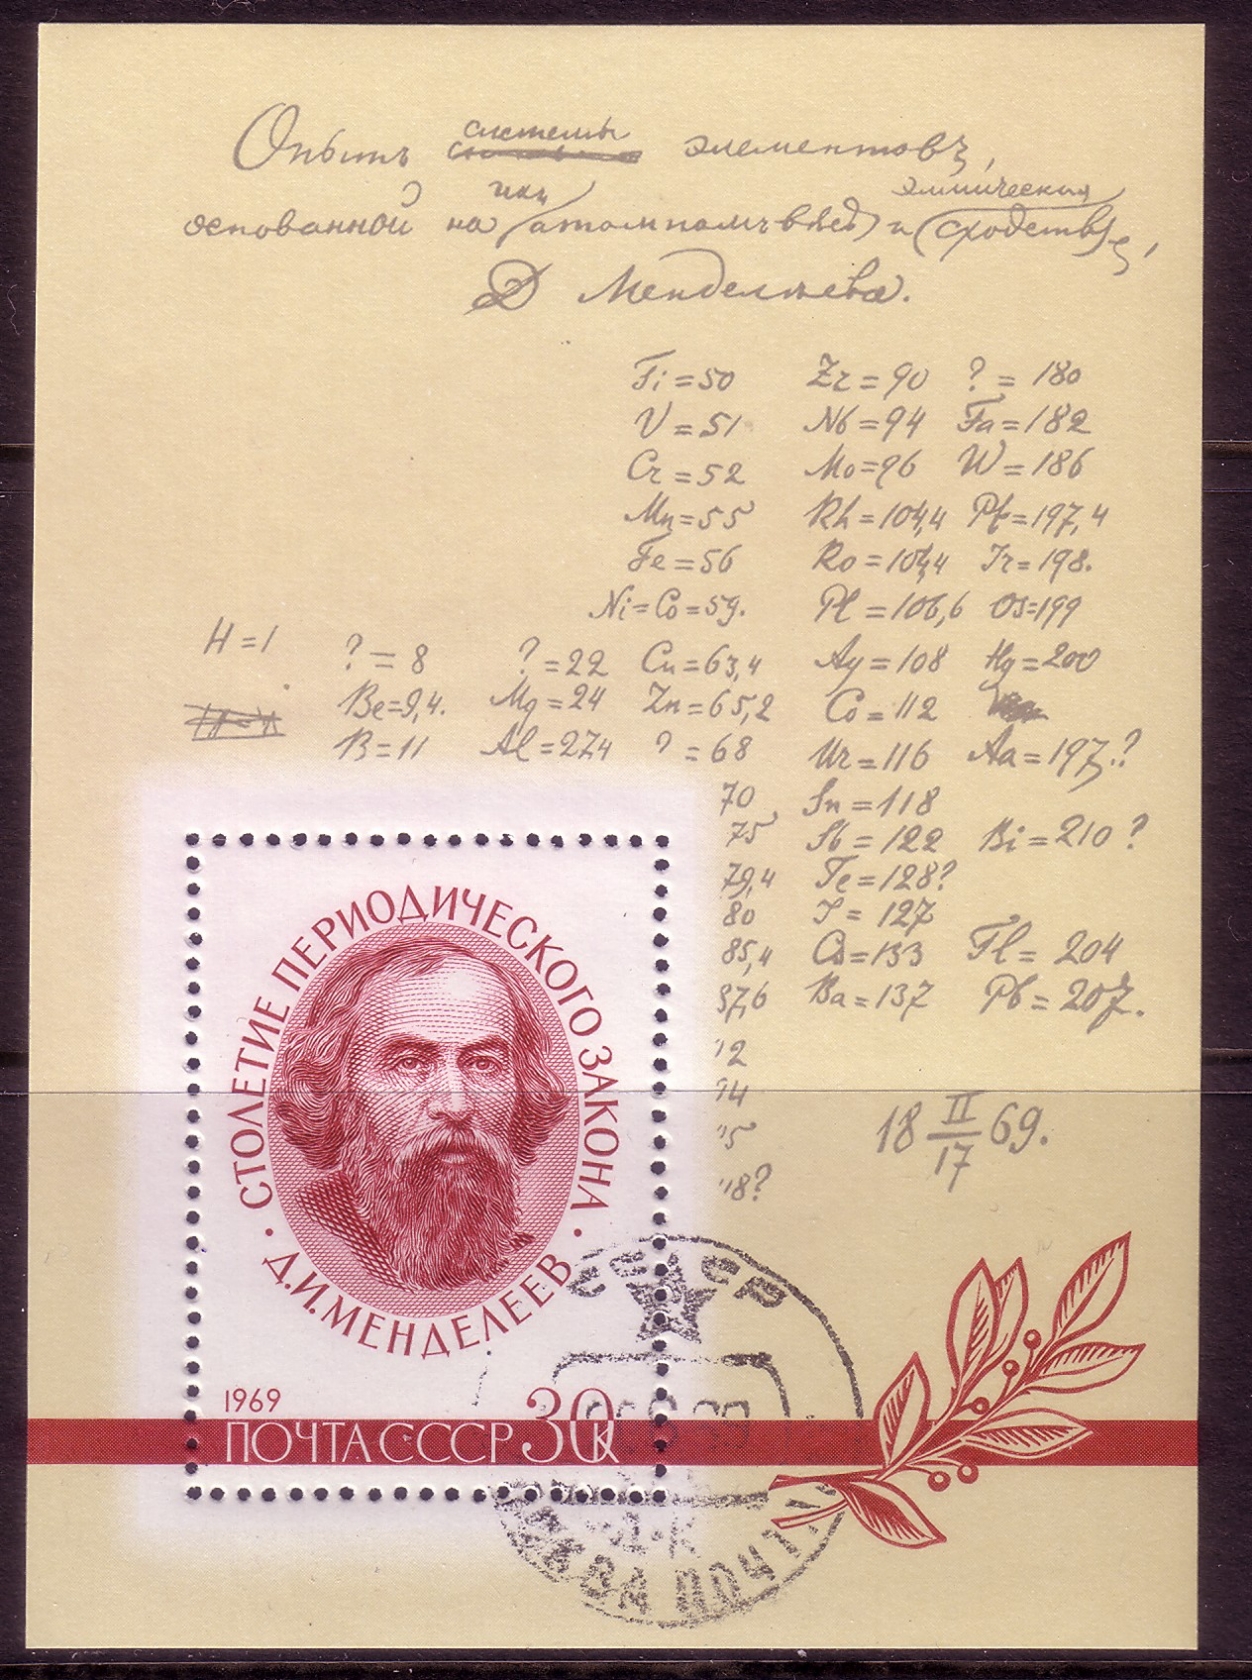 Опытъ системы элементовъ,
основанной на ихъ атомномъ вѣсѣ и химическомъ сходствѣ,
Д Менделѣева.
Ti = 50 Zr = 90 ? = 180
V = 51 Nb = 94 Ta = 182
Cr = 52 Mo = 96 W = 186
Mn = 55 Rh = 104,4 Pt = 197,4
Fe = 56 Ro = 104,4 Ir = 198.
Ni = Co = 59. Pl = 106,6 Os = 199
H = 1 ? = 8 ? = 22 Cu = 63,4 Ag = 108 Hg = 200
Be = 9,4. Mg = 24 Zn = 65,2 112
B = 11 Al = 27,4 ? = 68 Ur = 116 Au = 197?
70 Sn = 118
75 Sb = 122 Bi = 210 ?
79,4 Te = 128?
80 I = 127
85,4 Cs = 133 Tl = 204
87,6 Ba = 137 Pb = 207.
18 II/17 69.
СТОЛЕТИЕ ПЕРИОДИЧЕСКОГО ЗАКОНА
· Д.И.МЕНДЕЛЕЕВ ·
1969
ПОЧТА СССР 30К
СССР
ПОЧТ